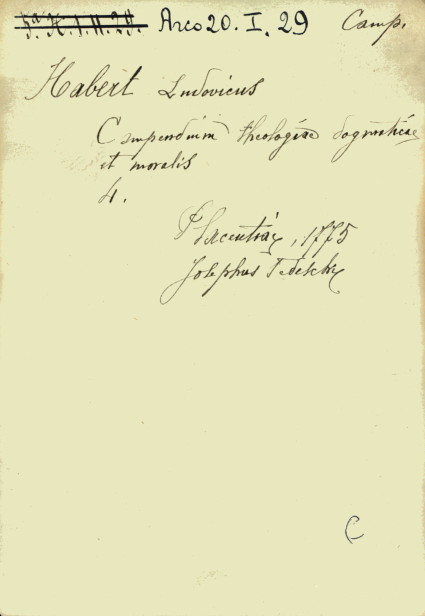 5ª H.I.11.29. Arco 20. I. 29 Camp.
Habert Ludovicus
Compendium theologiae dogmaticae
et moralis
4.
Placentiae, 1775
Josephus Tedeschi
C